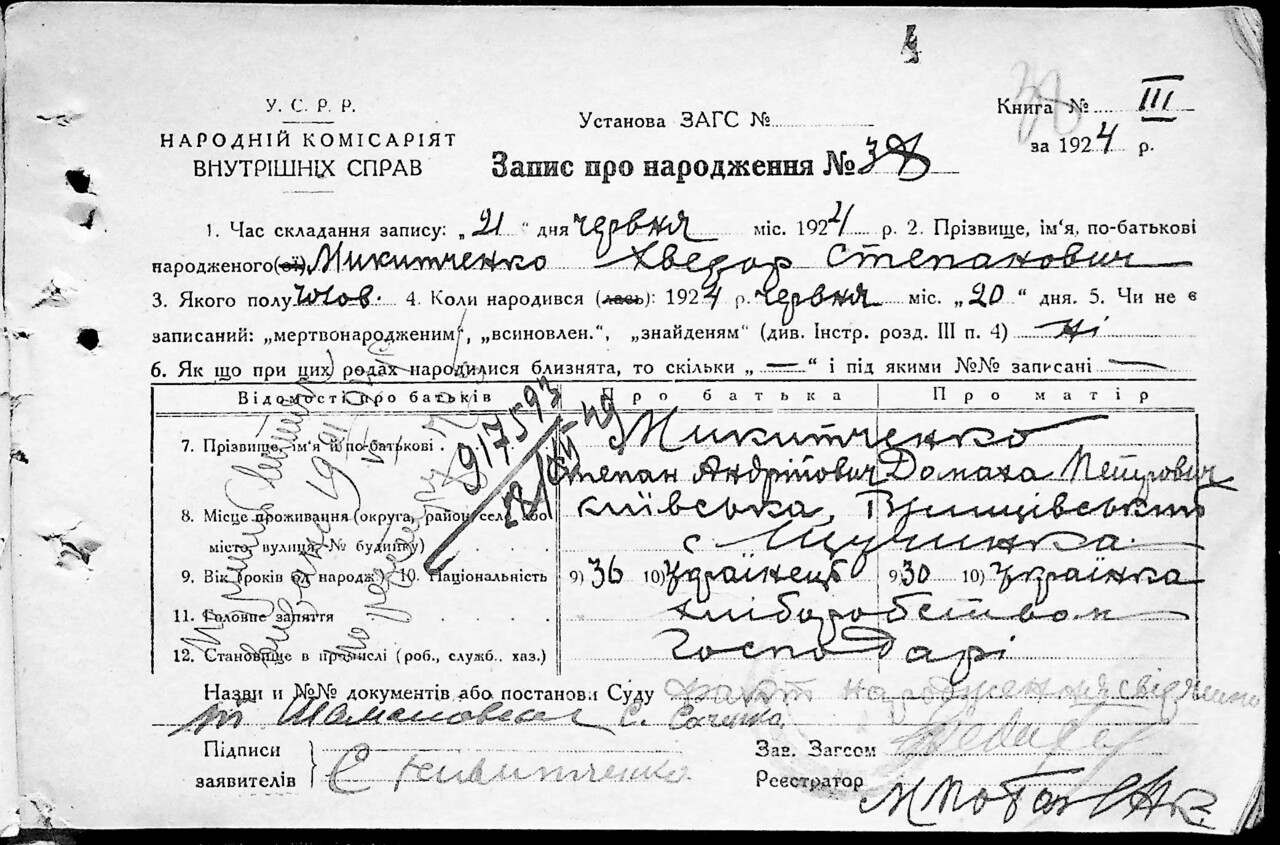 4
У. С. Р. Р.
НАРОДНІЙ КОМІСАРІЯТ
ВНУТРІШНІХ СПРАВ
Установа ЗАГС №
Книга № III
за 1924 р.
38
Запис про народження № 38
1. Час складання запису: „21“ дня червня міс. 1924 р. 2. Прізвище, ім'я, по-батькові
народженого(ої) Микитченко Хведор Степанович
3. Якого полу чолов. 4. Коли народився (лась): 1924 р. червня міс. „20“ дня. 5. Чи не є
записаний: „мертвонародженим“, „всиновлен.“, „знайденям“ (див. Інстр. розд. III п. 4) ні
6. Як що при цих родах народилися близнята, то скільки „—“ і під якими №№ записані —
Відомості про батьків Про батька Про матір
7. Прізвище, ім'я й по-батькові Микитченко
Степан Андрійович Домаха Петрович
8. Місце проживання (округа, район, село або Київська,
місто, вулиця, № будинку) с Щучинка
9. Вік (років од народж.) 10. Національність 9) 36 10) Українець 9) 30 10) Українка
11. Головне заняття хліборобством
12. Становище в промислі (роб., служб., хаз.) Господарі
917593
Назви и №№ документів або постанови Суду народження
Підписи
заявителів С Микитченко
Зав. Загсом
Реєстратор